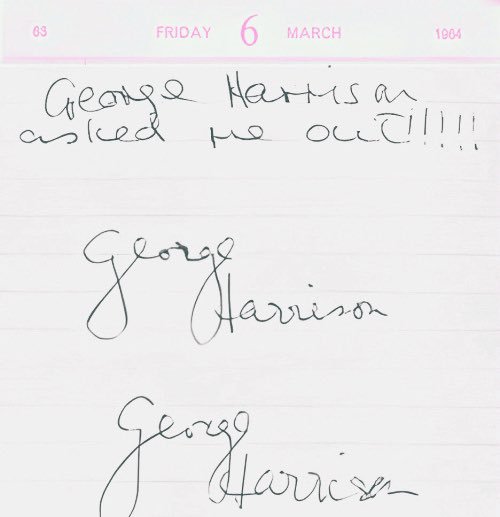 63 FRIDAY 6 MARCH 1964
George Harrison
asked me out!!!!!
George
Harrison
George
Harrison